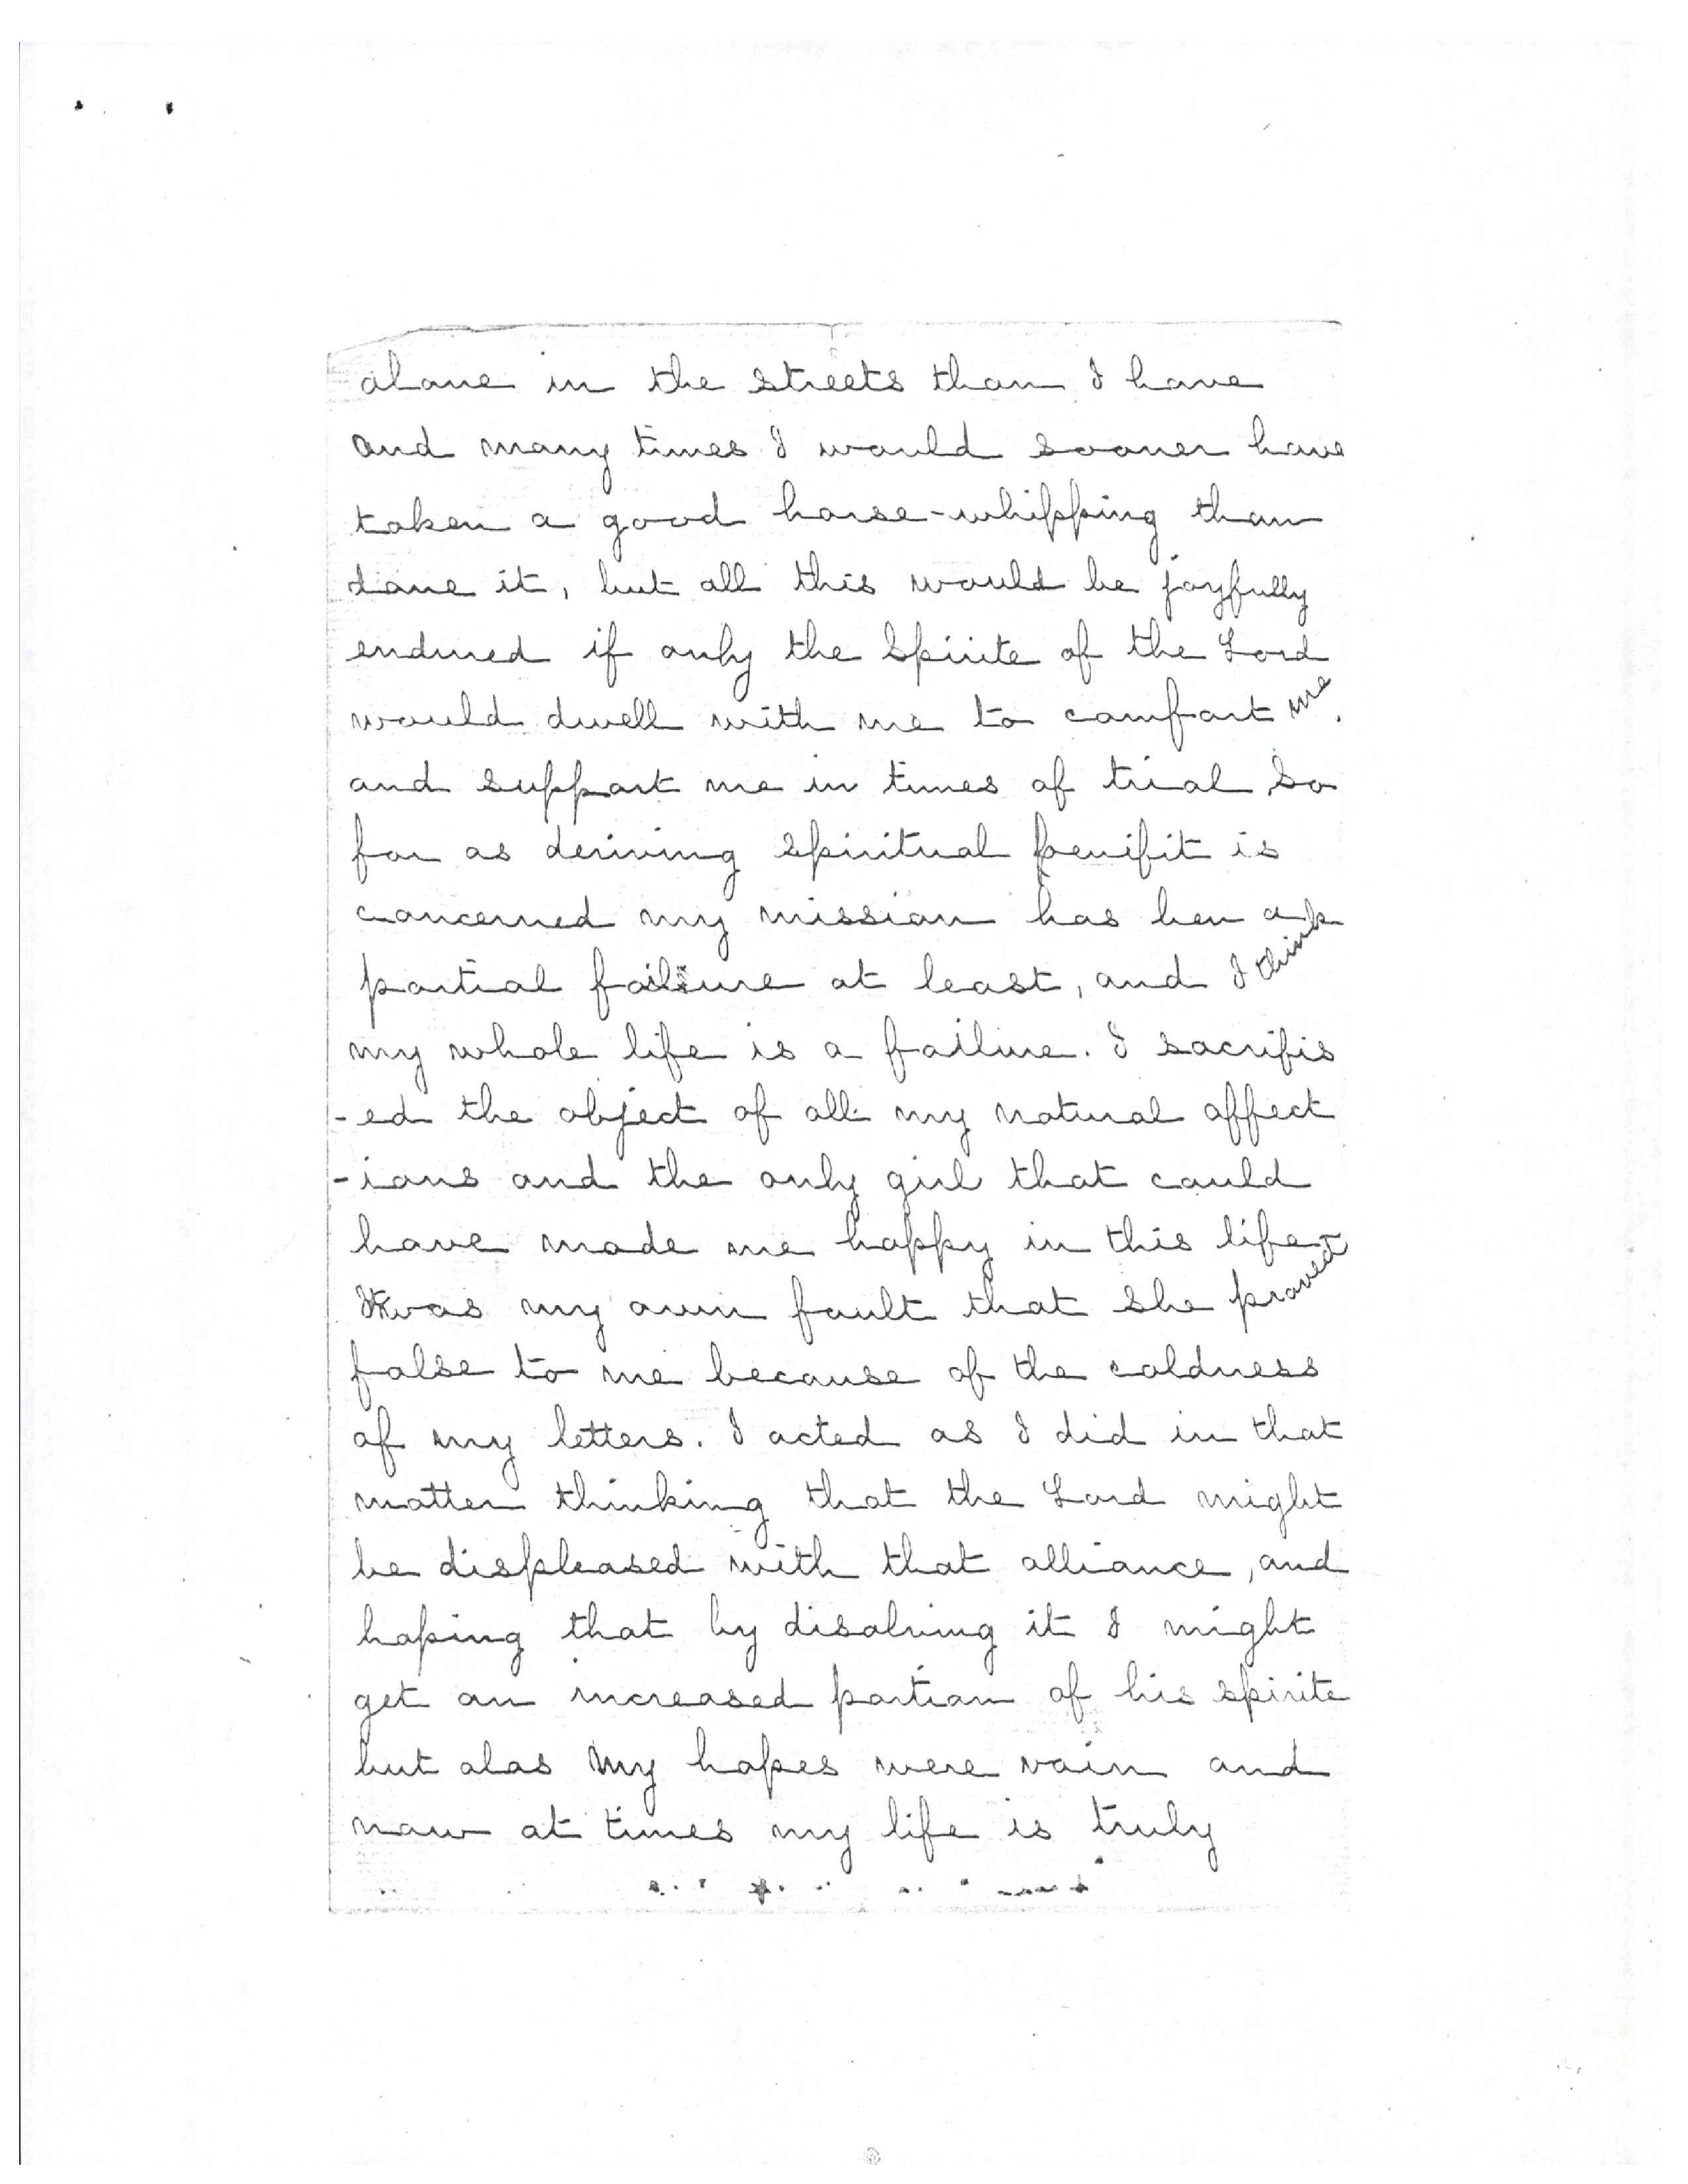 alone in the streets than I have
and many times I would sooner have
taken a good horse-whipping than
done it, but all this would be joyfully
endured if only the Spirite of the Lord
would dwell with me to comfort me.
and support me in times of trial So
far as deriving spiritual benifit is
concerned my mission has ben a
partial failure at least, and I think
my whole life is a failure. I sacrifis
-ed the object of all my natural affect
-ions and the only girl that could
have made me happy in this life
It was my own fault that she proved
false to me because of the coldness
of my letters. I acted as I did in that
matter thinking that the Lord might
be displeased with that alliance, and
hoping that by disolving it I might
get an increased portion of his spirite
but alas my hopes were vain and
now at times my life is truly